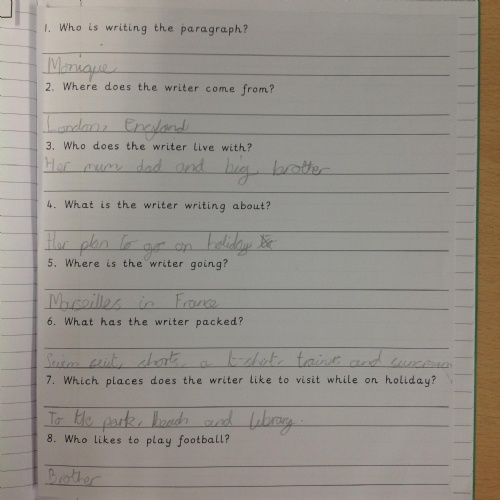 1. Who is writing the paragraph?
Monique
2. Where does the writer come from?
London, England
3. Who does the writer live with?
Her mum dad and big brother
4. What is the writer writing about?
Her plan to go on holiday
5. Where is the writer going?
Marseilles in France
6. What has the writer packed?
Swim suit, shorts, a t-shot, and
7. Which places does the writer like to visit while on holiday?
To the park, beach and library.
8. Who likes to play football?
Brother